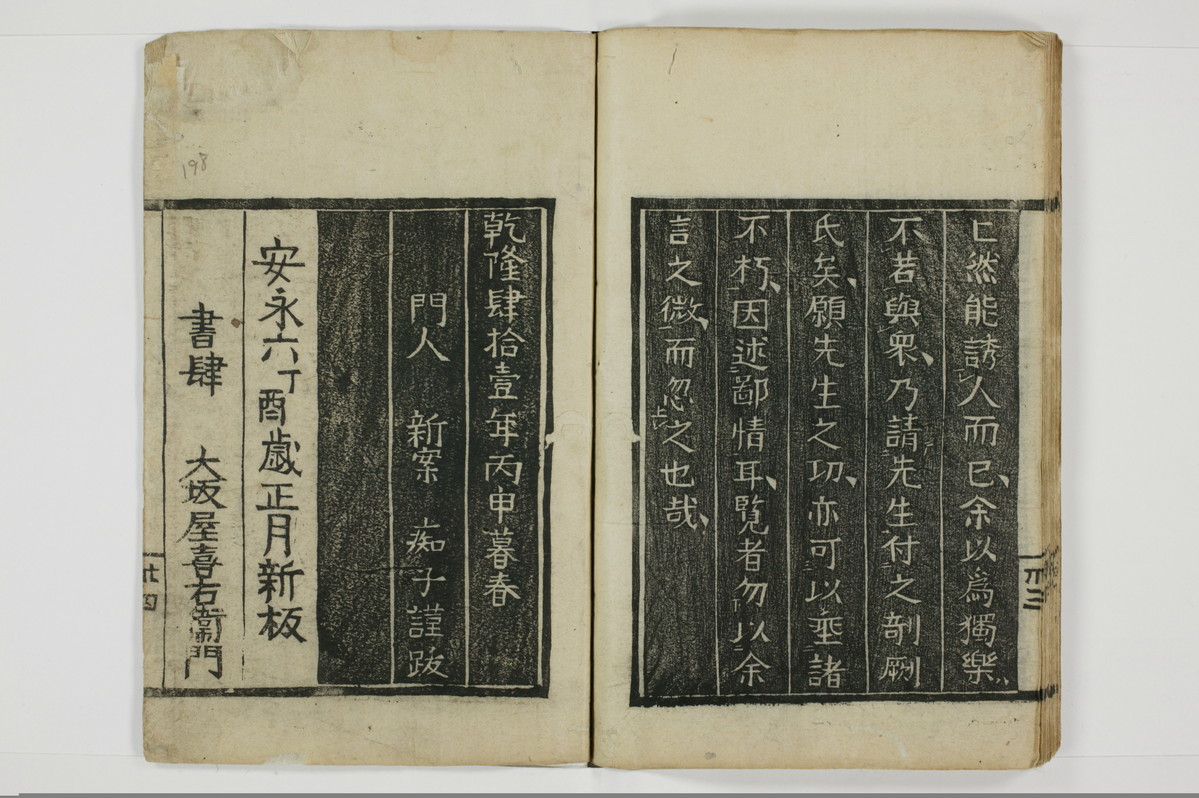 亡然能誘人而已、余以爲獨樂
不若與衆、乃請先生付之剞劂
氏矣、願先生之功、亦可以垂諸
不朽、因述鄙情耳、覧者勿以余
言之微、而忽之也哉、
卅三
乾隆肆拾壹年丙申暮春
門人 新案 痴子謹跋
安永六丁酉歳正月新板
書肆 大坂屋喜右衛門
卅四
198